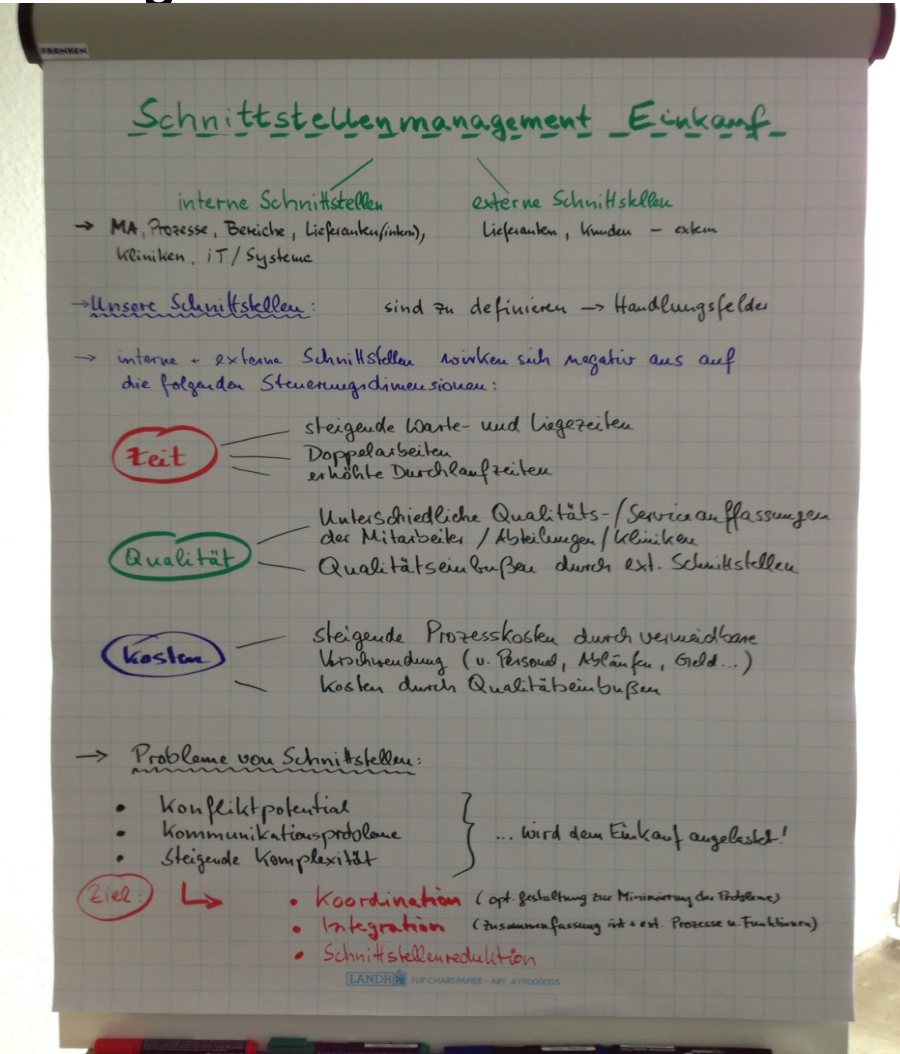 FRANKEN
Schnittstellenmanagement Einkauf
interne Schnittstellen externe Schnittstellen
→ MA, Prozesse, Bereiche, Lieferanten (intern), Lieferanten, Kunden - extern
Kliniken, iT/Systeme
→ Unsere Schnittstellen: sind zu definieren → Handlungsfelder
→ interne + externe Schnittstellen wirken sich negativ aus auf
die folgenden Steuerungsdimensionen:
Zeit
steigende Warte- und Liegezeiten
Doppelarbeiten
erhöhte Durchlaufzeiten
Qualität
Unterschiedliche Qualitäts-/Serviceauffassungen
der Mitarbeiter / Abteilungen / Kliniken
Qualitätseinbußen durch ext. Schnittstellen
Kosten
steigende Prozesskosten durch vermeidbare
Verschwendung (v. Personal, Abläufen, Geld...)
Kosten durch Qualitätseinbußen
→ Probleme von Schnittstellen:
• Konfliktpotential
• Kommunikationsprobleme
• Steigende Komplexität
... wird dem Einkauf angelastet!
Ziel:
• Koordination (opt. Gestaltung zur Minimierung der Probleme)
• Integration (Zusammenfassung int + ext. Prozesse u. Funktionen)
• Schnittstellenreduktion
LANDRÉ FLIP-CHART-PAPIER • ART. 419000005